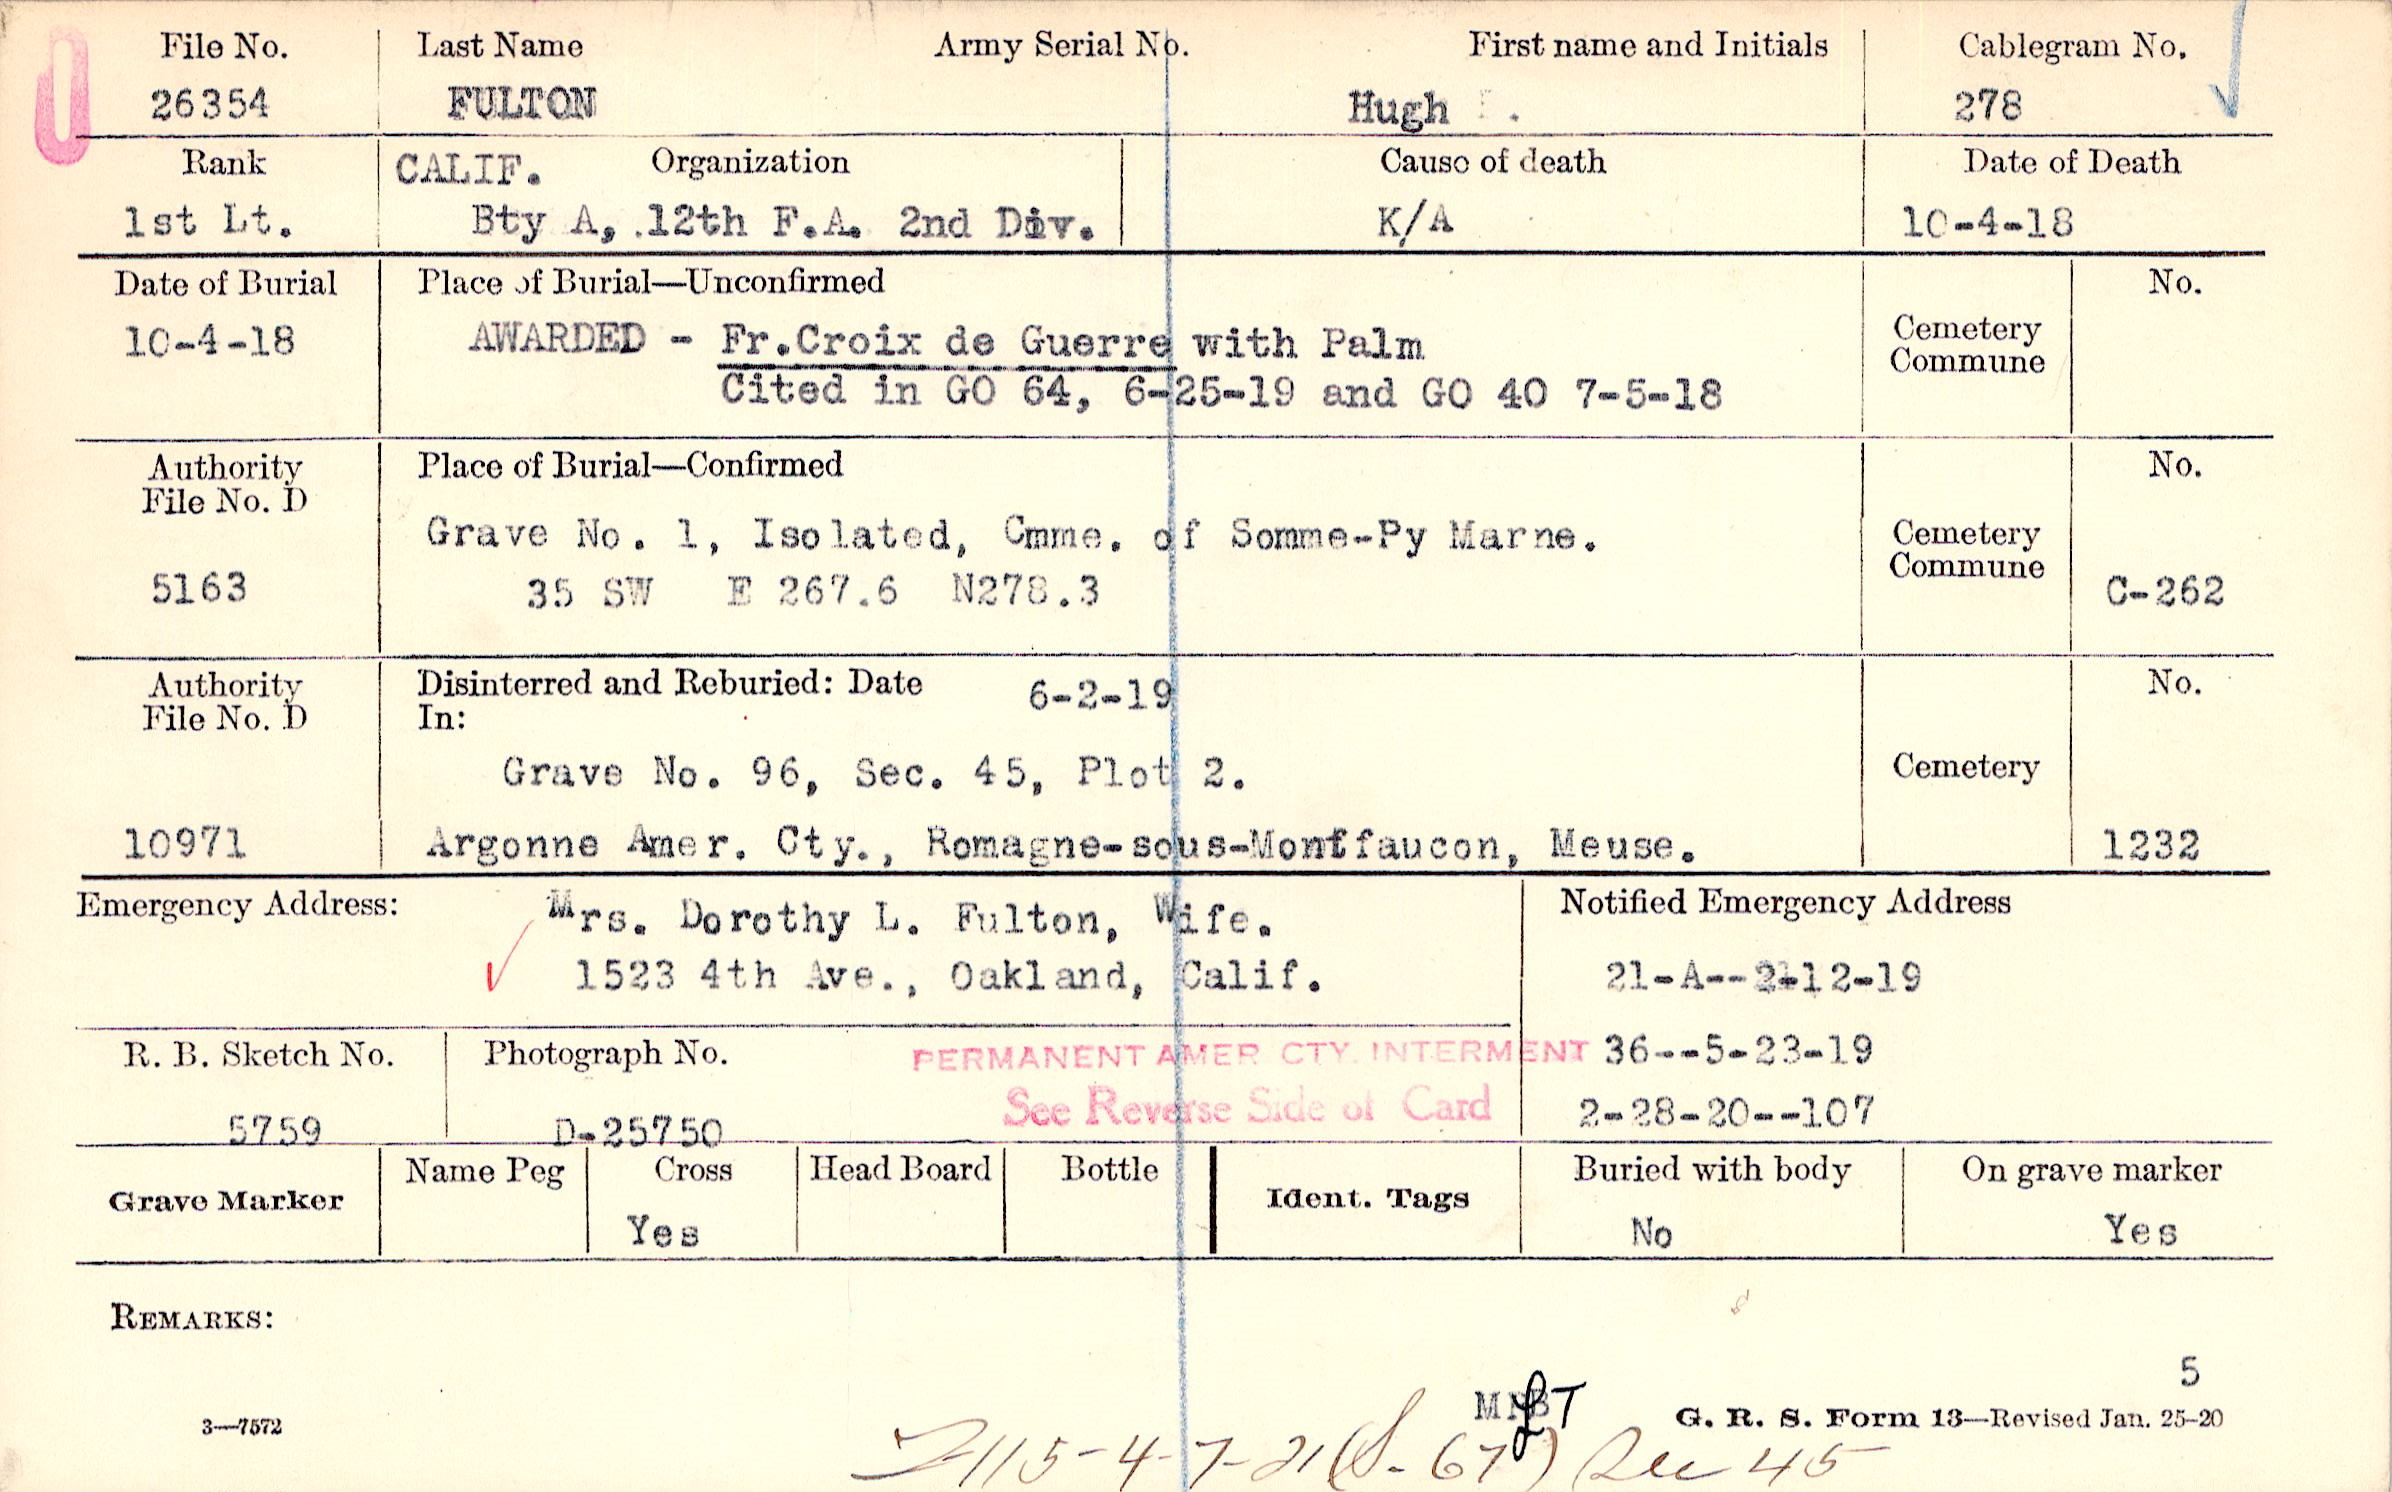 File No. Last Name Army Serial No. First name and Initials Cablegram No.
26354 FULTON Hugh . 278
Rank CALIF. Organization Cause of death Date of Death
1st Lt. Bty A, 12th F.A. 2nd Div. K/A 10-4-18
Date of Burial Place of Burial—Unconfirmed No.
10-4-18 AWARDED - Fr.Croix de Guerre with Palm Cemetery
Commune
Cited in GO 64, 6-25-19 and GO 40 7-5-18
Authority Place of Burial—Confirmed No.
File No. D
Grave No. 1, Isolated, Cmme. of Somme-Py Marne. Cemetery
Commune
5163 35 SW E 267.6 N278.3 C-262
Authority Disinterred and Reburied: Date 6-2-19 No.
File No. D In:
Grave No. 96, Sec. 45, Plot 2. Cemetery
10971 Argonne Amer. Cty., Romagne-sous-Montfaucon, Meuse. 1232
Emergency Address: Mrs. Dorothy L. Fulton, Wife. Notified Emergency Address
1523 4th Ave., Oakland, Calif. 21-A--2-12-19
R. B. Sketch No. Photograph No. PERMANENT AMER CTY. INTERMENT 36--5-23-19
5759 D-25750 See Reverse Side of Card 2-28-20--107
Grave Marker Name Peg Cross Head Board Bottle Ident. Tags Buried with body On grave marker
Yes No Yes
REMARKS:
5
3—7572 G. R. S. Form 13—Revised Jan. 25-20
115-4-7-21 (S-67) Sec 45